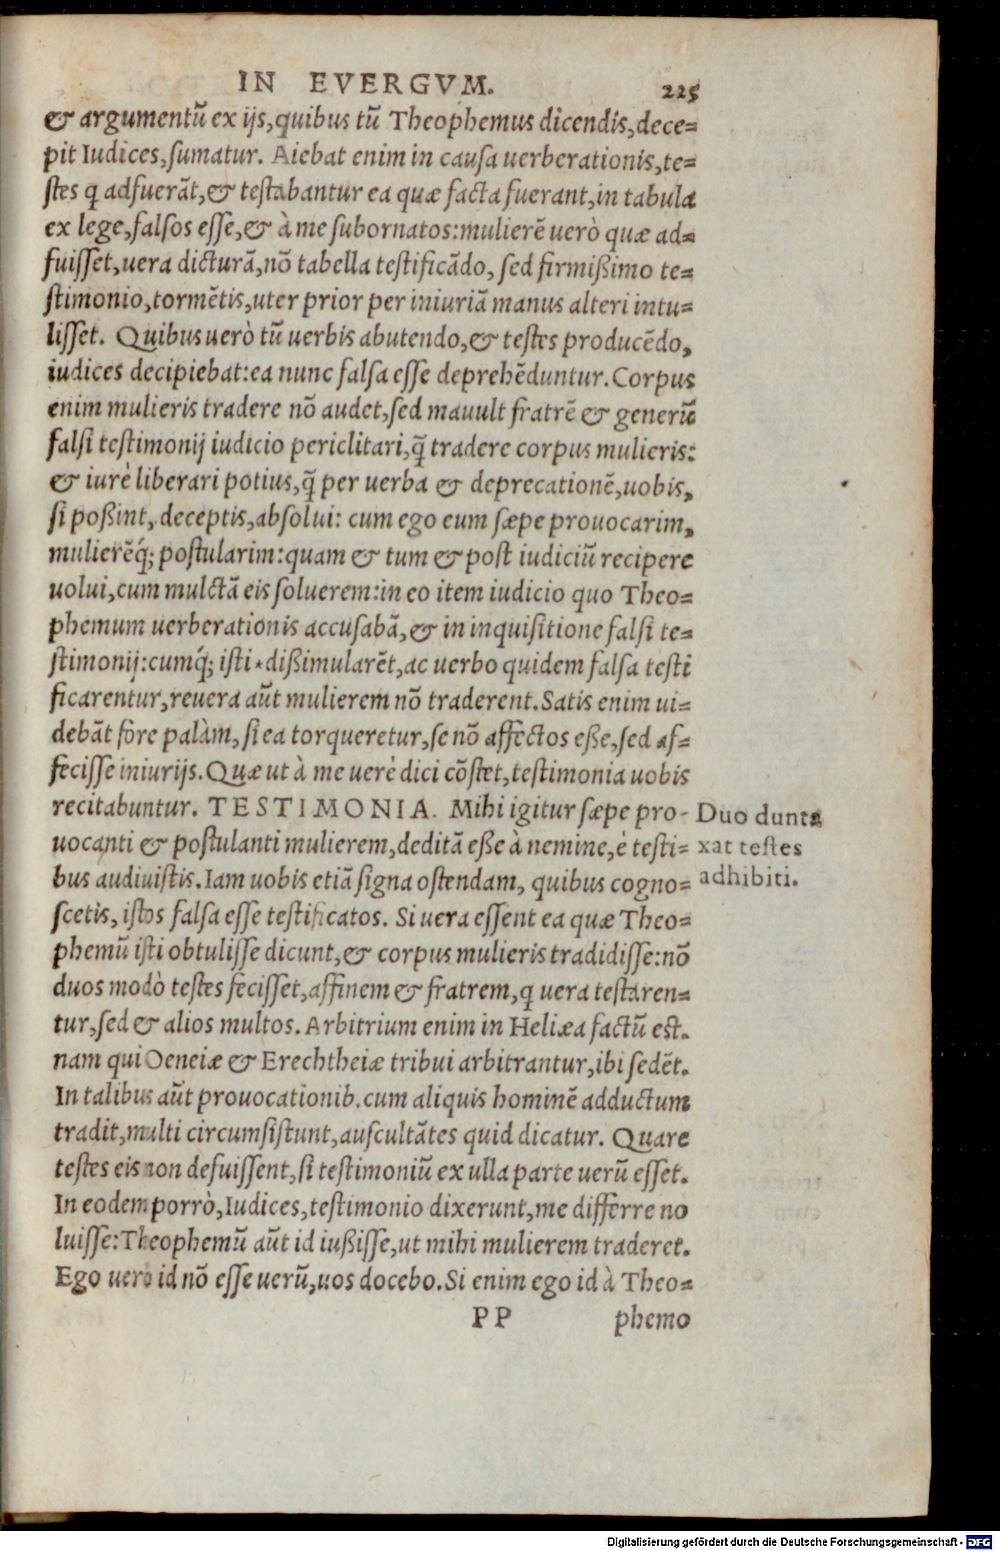 IN EVERGVM. 225
& argumentū ex ijs, quibus tū Theophemus dicendis, dece=
pit Iudices, sumatur. Aiebat enim in causa uerberationis, te=
stes q adfuerāt, & testabantur ea quæ facta fuerant, in tabula
ex lege, falsos esse, & à me subornatos: mulierē uerò quæ ad=
fuisset, uera dicturā, nō tabella testificādo, sed firmißimo te=
stimonio, tormētis, uter prior per iniuriā manus alteri intu=
lisset. Quibus uerò tū uerbis abutendo, & testes producēdo,
iudices decipiebat: ea nunc falsa esse deprehēduntur. Corpus
enim mulieris tradere nō audet, sed mauult fratrē & generū
falsi testimonij iudicio periclitari, q̃ tradere corpus mulieris:
& iurè liberari potius, q̃ per uerba & deprecationē, uobis,
si poßint, deceptis, absolui: cum ego eum sæpe prouocarim,
mulierēq́; postularim: quam & tum & post iudiciū recipere
uolui, cum mulctā eis soluerem: in eo item iudicio quo Theo=
phemum uerberationis accusabā, & in inquisitione falsi te=
stimonij: cumq́; isti * dißimularēt, ac uerbo quidem falsa testi
ficarentur, reuera aūt mulierem nō traderent. Satis enim ui=
debāt fore palàm, si ea torqueretur, se nō affectos eße, sed af=
fecisse iniurijs. Quæ ut à me uerè dici cōstet, testimonia uobis
recitabuntur. TESTIMONIA. Mihi igitur sæpe pro-
uocanti & postulanti mulierem, deditā eße à nemine, è testi=
bus audiuistis. Iam uobis etiā signa ostendam, quibus cogno=
scetis, istos falsa esse testificatos. Si uera essent ea quæ Theo=
phemū isti obtulisse dicunt, & corpus mulieris tradidisse: nō
duos modò testes fecisset, affinem & fratrem, q uera testaren=
tur, sed & alios multos. Arbitrium enim in Heliæa factū est.
nam qui Oeneiæ & Erechtheiæ tribui arbitrantur, ibi sedēt.
In talibus aūt prouocationib. cum aliquis hominē adductum
tradit, multi circumsistunt, auscultātes quid dicatur. Quare
testes eis non defuissent, si testimoniū ex ulla parte uerū esset.
In eodem porrò, Iudices, testimonio dixerunt, me differre no
luisse: Theophemū aūt id iußisse, ut mihi mulierem traderet.
Ego uero id nō esse uerū, uos docebo. Si enim ego id à Theo=
PP phemo
Duo dunta
xat testes
adhibiti.
Digitalisierung gefördert durch die Deutsche Forschungsgemeinschaft - DFG